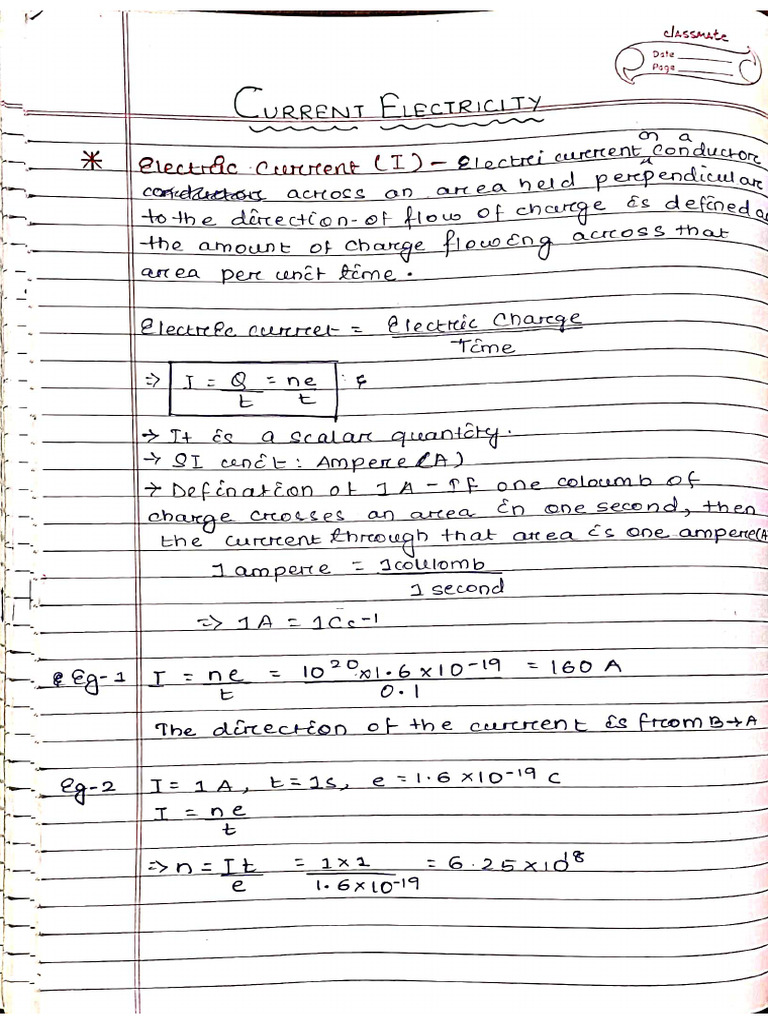 classmate
Date
Page
CURRENT ELECTRICITY
* Electric Current (I) - Electri current on a conductor
conductors across an area held perpendicular
to the direction of flow of charge is defined as
the amount of charge flowing across that
area per unit time.
Electric curret = Electric Charge / Time
=> I = Q/t = ne/t
→ It is a scalar quantity.
→ SI unit : Ampere (A)
→ Defination of 1 A - If one coloumb of
charge crosses an area in one second, then
the current through that area is one ampere(A
1 ampere = 1 coulomb / 1 second
=> 1A = 1Cs-1
Eg-1 I = ne/t = 10^20 x 1.6 x 10^-19 / 0.1 = 160 A
The direction of the current is from B→A
Eg-2 I = 1 A, t = 1s, e = 1.6 x 10^-19 C
I = ne/t
=> n = It/e = 1 x 1 / 1.6 x 10^-19 = 6.25 x 10^18